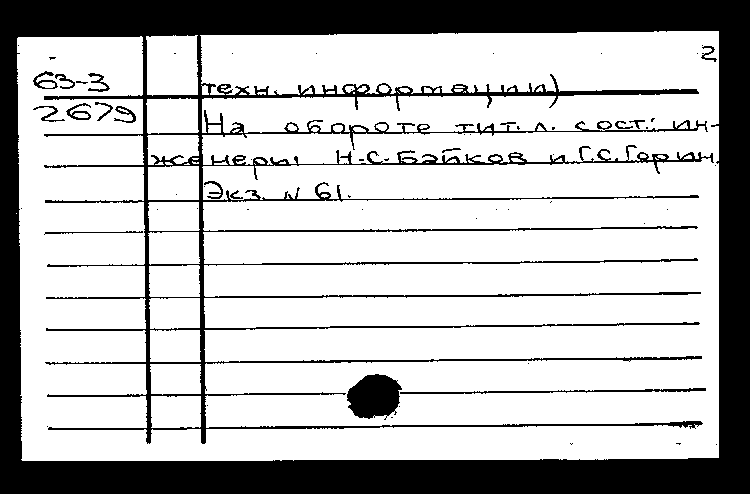 2
63-3
2679
техн. информации)
На обороте тит. л. сост.: ин-
женеры Н.С. Байков и Г.С. Горин.
Экз. № 61.